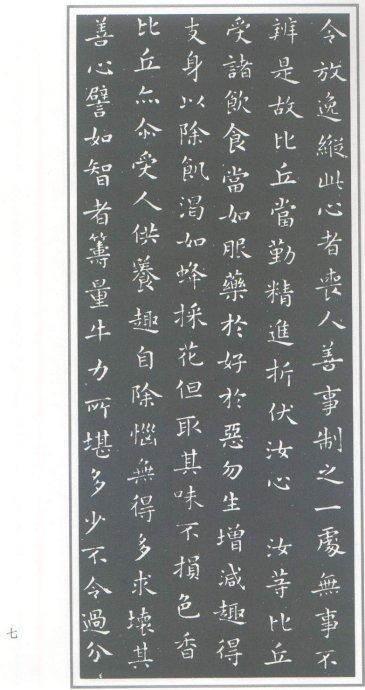 令放逸縱此心者喪人善事制之一處無事不
辨是故比丘當勤精進折伏汝心 汝等比丘
受諸飲食當如服藥於好於惡勿生增減趣得
支身以除飢渴如蜂採花但取其味不損色香
比丘亦尒受人供養趣自除惱無得多求壞其
善心譬如智者籌量牛力所堪多少不令過分
七